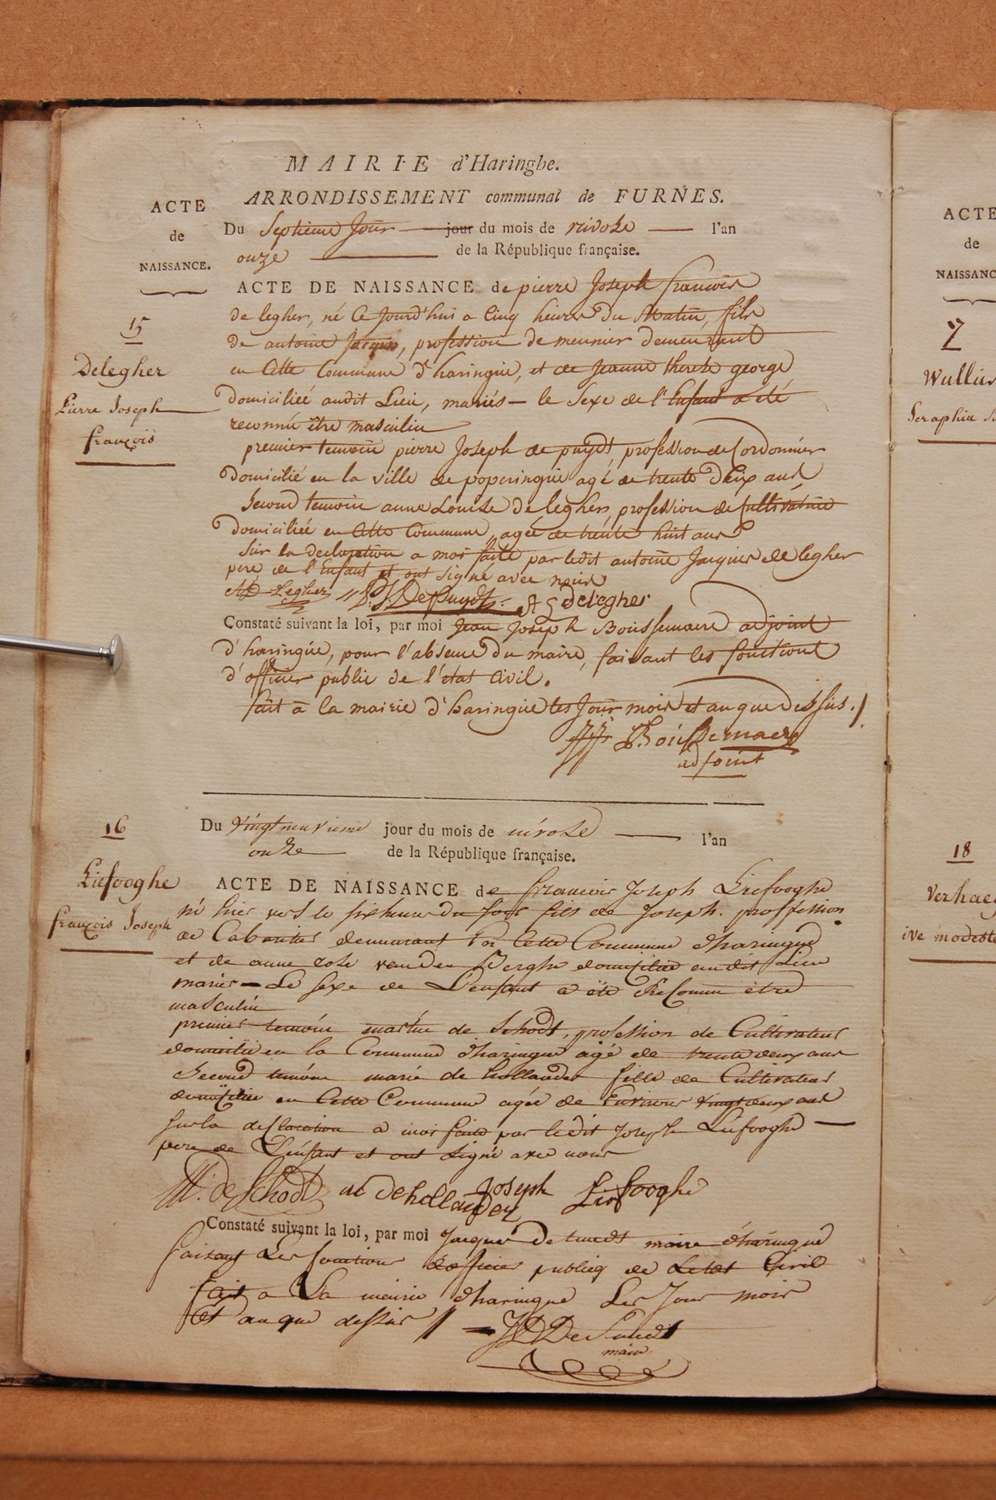 MAIRIE d'Haringhe.
ARRONDISSEMENT communal de FURNES.
ACTE
de
NAISSANCE.
Du Septieme Jour jour du mois de nivose l'an
onze de la République française.
15
Delegher
Pierre Joseph
françois
ACTE DE NAISSANCE de pierre Joseph francois
de legher, né Ce Jourd'hui a Cinq heures du Matin, fils
de antoine Jacques, profession de meunier demeurant
en Cette Commune d'haringue, et de Jeanne therese george
domiciliée audit Lieu, mariés — le Sexe de l'Enfant a été
reconnu être masculin
premier temoin pierre Joseph de puydt profession de Cordonnier
domicilié en la ville de poperingue agé de trente Deux ans
Second temoin anne Louise De legher, profession de Cultivatrice
domiciliée en Cette Commune, agée de trente huit ans
Sur la declaration a moi faite par ledit antoine Jacques de legher
pere de l'Enfant et ont signé avec nous
AD Legher P. J. De Puydt A L delegher
Constaté suivant la loi, par moi Jean Joseph Boussemaere adjoint
d'haringue, pour l'absence du maire, faisant les fonctions
d'officier public de l'état Civil.
fait à la mairie d'haringue les Jour mois et an que Dessus ./.
Boussemaere
adjoint
16
Liefooghe
françois Joseph
Du vingtneuvieme jour du mois de nivose l'an
onze de la République française.
ACTE DE NAISSANCE de francois Joseph Liefooghe
né hier vers le sixheure du soir fils de Joseph. proffession
de Cabaretier demeurant en Cette Commune d'haringue
et de anne rose vanden Berghe domicilie audit Lieu
mariés — Le Sexe de L'enfant a été ReConnu être
masculin
premier temoin martin de Schodt, profession de Cultivateur
domicilie en la Commune d'haringue agé de trente deux ans
Second temoin marie de hollander fille de Cultivateur
domicilie en Cette Commune agée de Environ vingt deux ans
sur la declaration a moi faite par ledit Joseph Liefooghe —
pere de L'enfant et ont signé avec nous
M. de Schodt de hollander Joseph Liefooghe
Constaté suivant la loi, par moi Jacques De maire d'haringue
faisant Les fonctions d'officier publiq de Letat Civil
fait a La mairie d'haringue Les Jour mois
Et an que dessus //
maire
ACTE
de
NAISSANC
Wullus
Seraphin
18
Verhaeg
ive modeste